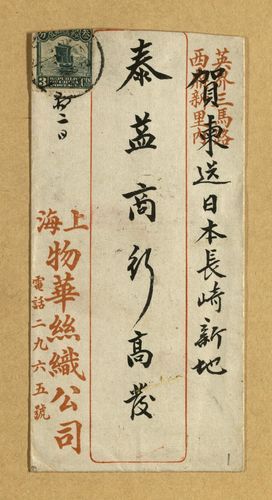 英界三馬路
西󠄁新里內
賀柬送日本長崎新地
泰益商行高發
初二日
上海
物華絲織公司
電話二九六五號
3